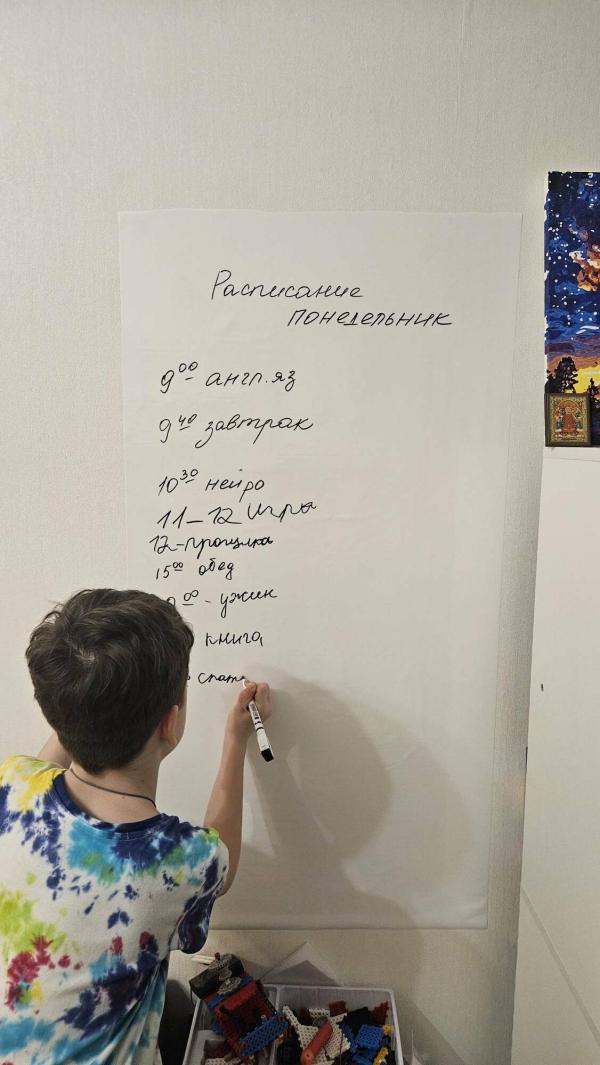 Расписание
понедельник
9 00 англ.яз
9 40 завтрак
10 30 нейро
11-12 Игры
12-прогулка
15 00 обед
00 - ужин
книга
спать